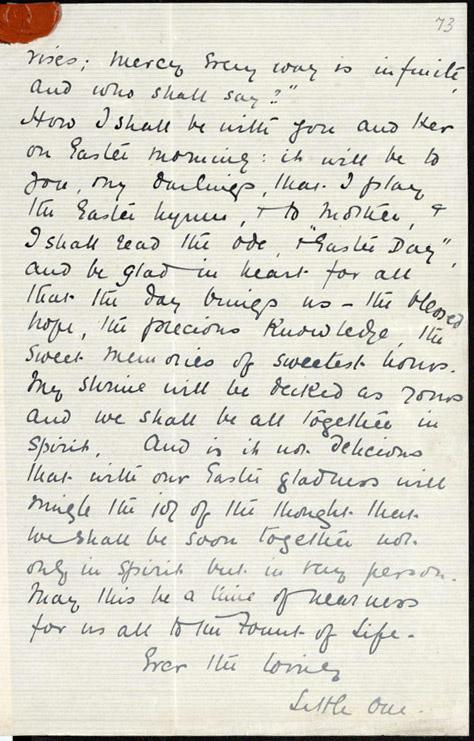 73
rises; Mercy every way is infinite,
and who shall say?"
How I shall be with you and Her
on Easter morning: it will be to
you, my darlings, that I play
the Easter hymns, & to Mother, &
I shall read the Ode, & "Easter Day",
and be glad in heart for all
that the day brings us – the blessed
hope, the precious Knowledge, the
sweet memories of sweetest hours.
My shrine will be decked as yours
and we shall be all together in
spirit. And is it not delicious
that with our Easter gladness will
mingle the joy of the thought that
we shall be soon together not
only in spirit but in very person.
May this be a time of nearness
for us all to the Fount of Life.
Ever the loving
Little One.